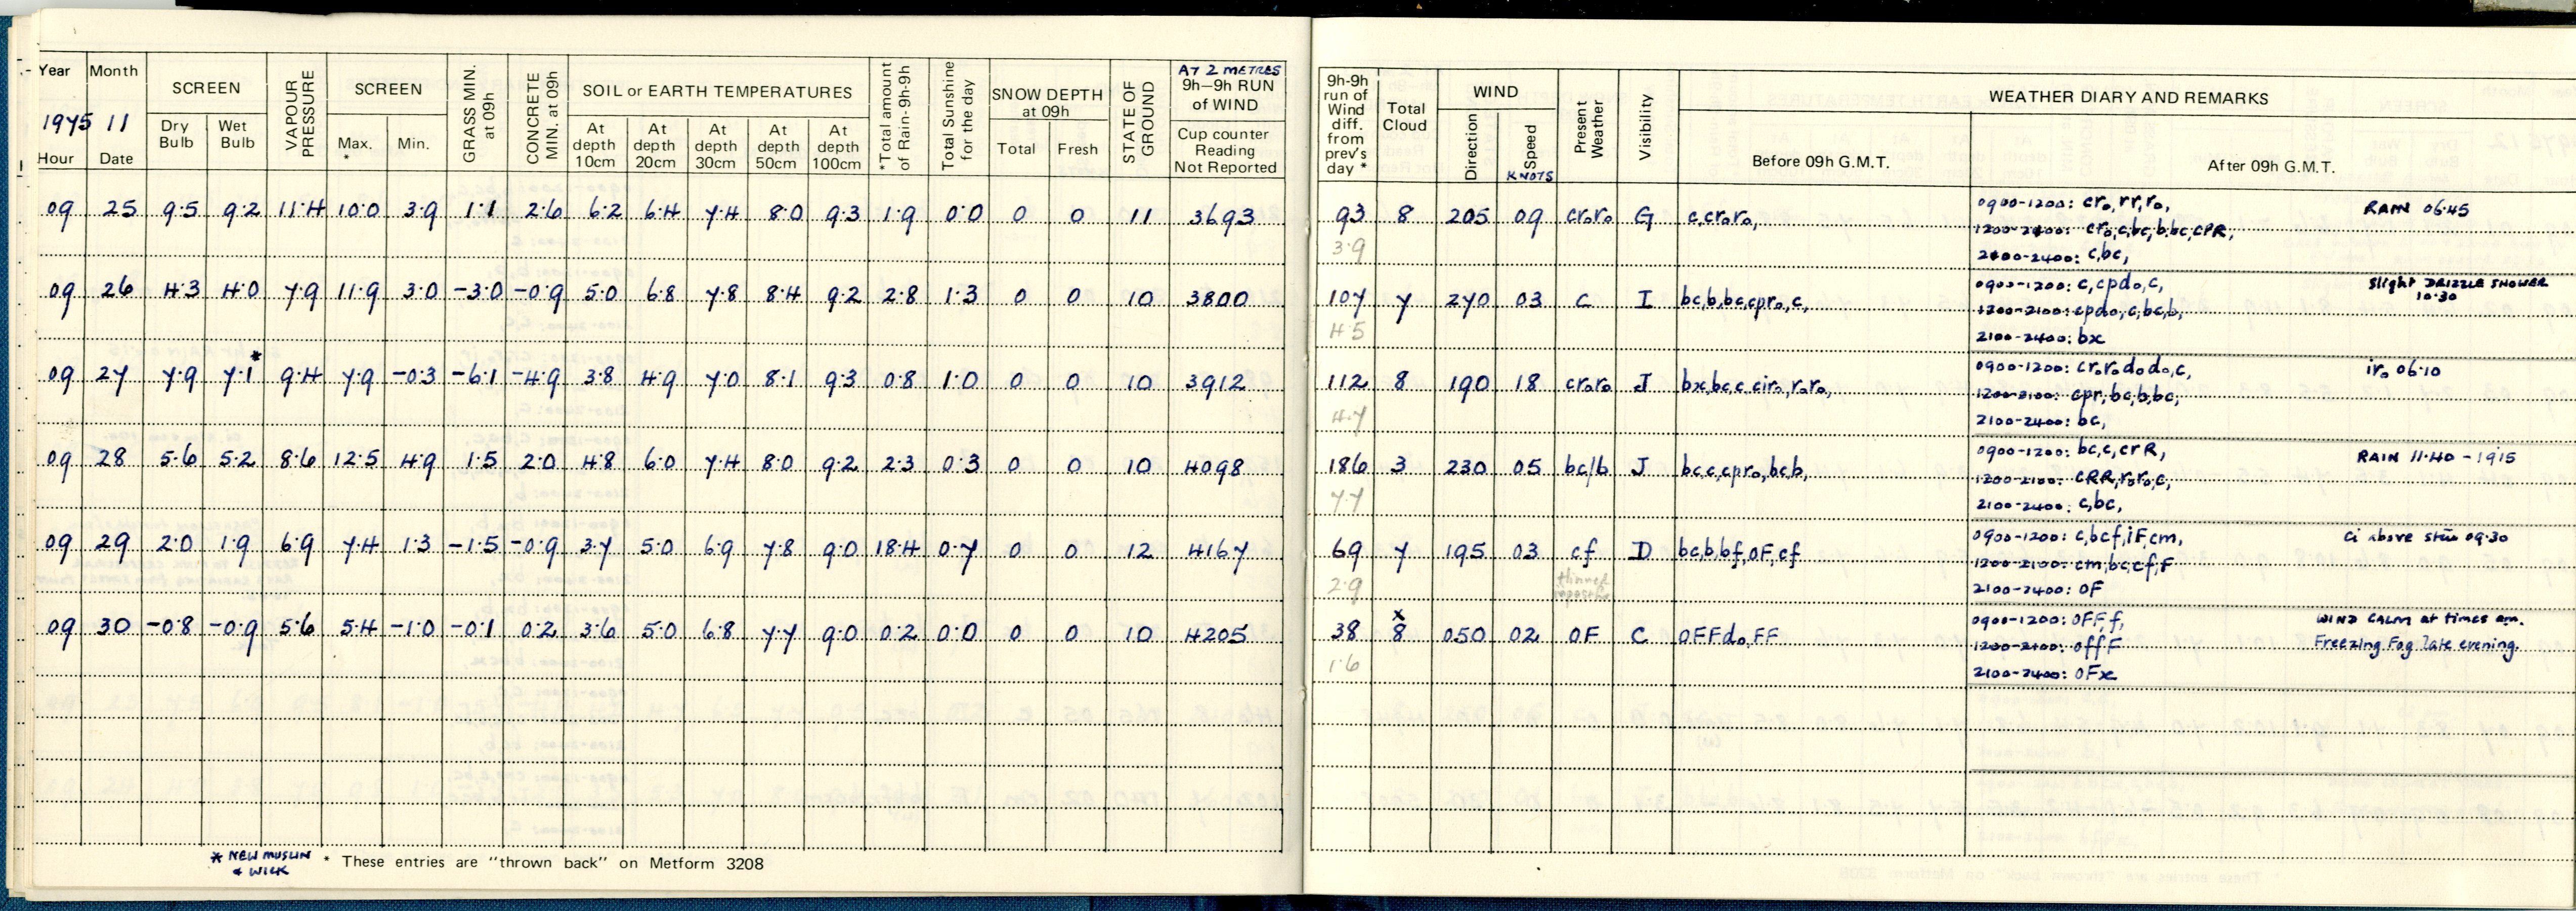 Year Month SCREEN VAPOUR PRESSURE SCREEN GRASS MIN. at 09h CONCRETE MIN. at 09h SOIL or EARTH TEMPERATURES *Total amount of Rain-9h-9h Total Sunshine for the day SNOW DEPTH at 09h STATE OF GROUND AT 2 METRES 9h—9h RUN of WIND
1975 11 Dry Bulb Wet Bulb Max. * Min. At depth 10cm At depth 20cm At depth 30cm At depth 50cm At depth 100cm Total Fresh Cup counter Reading Not Reported
Hour Date
09 25 9.5 9.2 11.4 10.0 3.9 1.1 2.6 6.2 6.4 7.4 8.0 9.3 1.9 0.0 0 0 11 3693
09 26 4.3 4.0 7.9 11.9 3.0 -3.0 -0.9 5.0 6.8 7.8 8.4 9.2 2.8 1.3 0 0 10 3800
*
09 27 7.9 7.1 9.4 7.9 -0.3 -6.1 -4.9 3.8 4.9 7.0 8.1 9.3 0.8 1.0 0 0 10 3912
09 28 5.6 5.2 8.6 12.5 4.9 1.5 2.0 4.8 6.0 7.4 8.0 9.2 2.3 0.3 0 0 10 4098
09 29 2.0 1.9 6.9 7.4 1.3 -1.5 -0.9 3.7 5.0 6.9 7.8 9.0 18.4 0.7 0 0 12 4167
09 30 -0.8 -0.9 5.6 5.4 -1.0 -0.1 0.2 3.6 5.0 6.8 7.7 9.0 0.2 0.0 0 0 10 4205
* NEW MUSLIN & WICK
* These entries are "thrown back" on Metform 3208
9h-9h run of Wind diff. from prev's day * Total Cloud WIND Present Weather Visibility WEATHER DIARY AND REMARKS
Direction Speed KNOTS Before 09h G.M.T. After 09h G.M.T.
93 8 205 09 cr₀r₀ G c,cr₀r₀, 0900-1200: cr₀,rr,r₀, RAIN 06.45
3.9 1200-2100: cr₀,c,bc,b,bc,cPR,
2100-2400: c,bc,
107 7 270 03 c I bc,b,bc,cpr₀,c, 0900-1200: c,cpd₀,c, slight DRIZZLE SHOWER 10.30
4.5 1200-2100: cpd₀,c,bc,b,
2100-2400: bx
112 8 190 18 cr₀r₀ J bx,bc,c,cir₀,r₀r₀, 0900-1200: cr₀r₀d₀d₀,c, ir₀ 06.10
4.7 1200-2100: cpr,bc,b,bc,
2100-2400: bc,
186 3 230 05 bc/b J bc,c,cpr₀,bc,b, 0900-1200: bc,c,crR, RAIN 11.40 - 1915
7.7 1200-2100: cRR,r₀r₀,c,
2100-2400: c,bc,
69 7 195 03 cf D bc,b,bf,oF,cf 0900-1200: c,bcf,iF,cm, Ci above 09.30
2.9 thinned 1200-2100: cm,bc,cf,F
2100-2400: oF
x
38 8 050 02 OF C OFFd₀,FF 0900-1200: OFF,f, WIND CALM at times am.
1.6 1200-2100: offF Freezing Fog late evening.
2100-2400: OFx